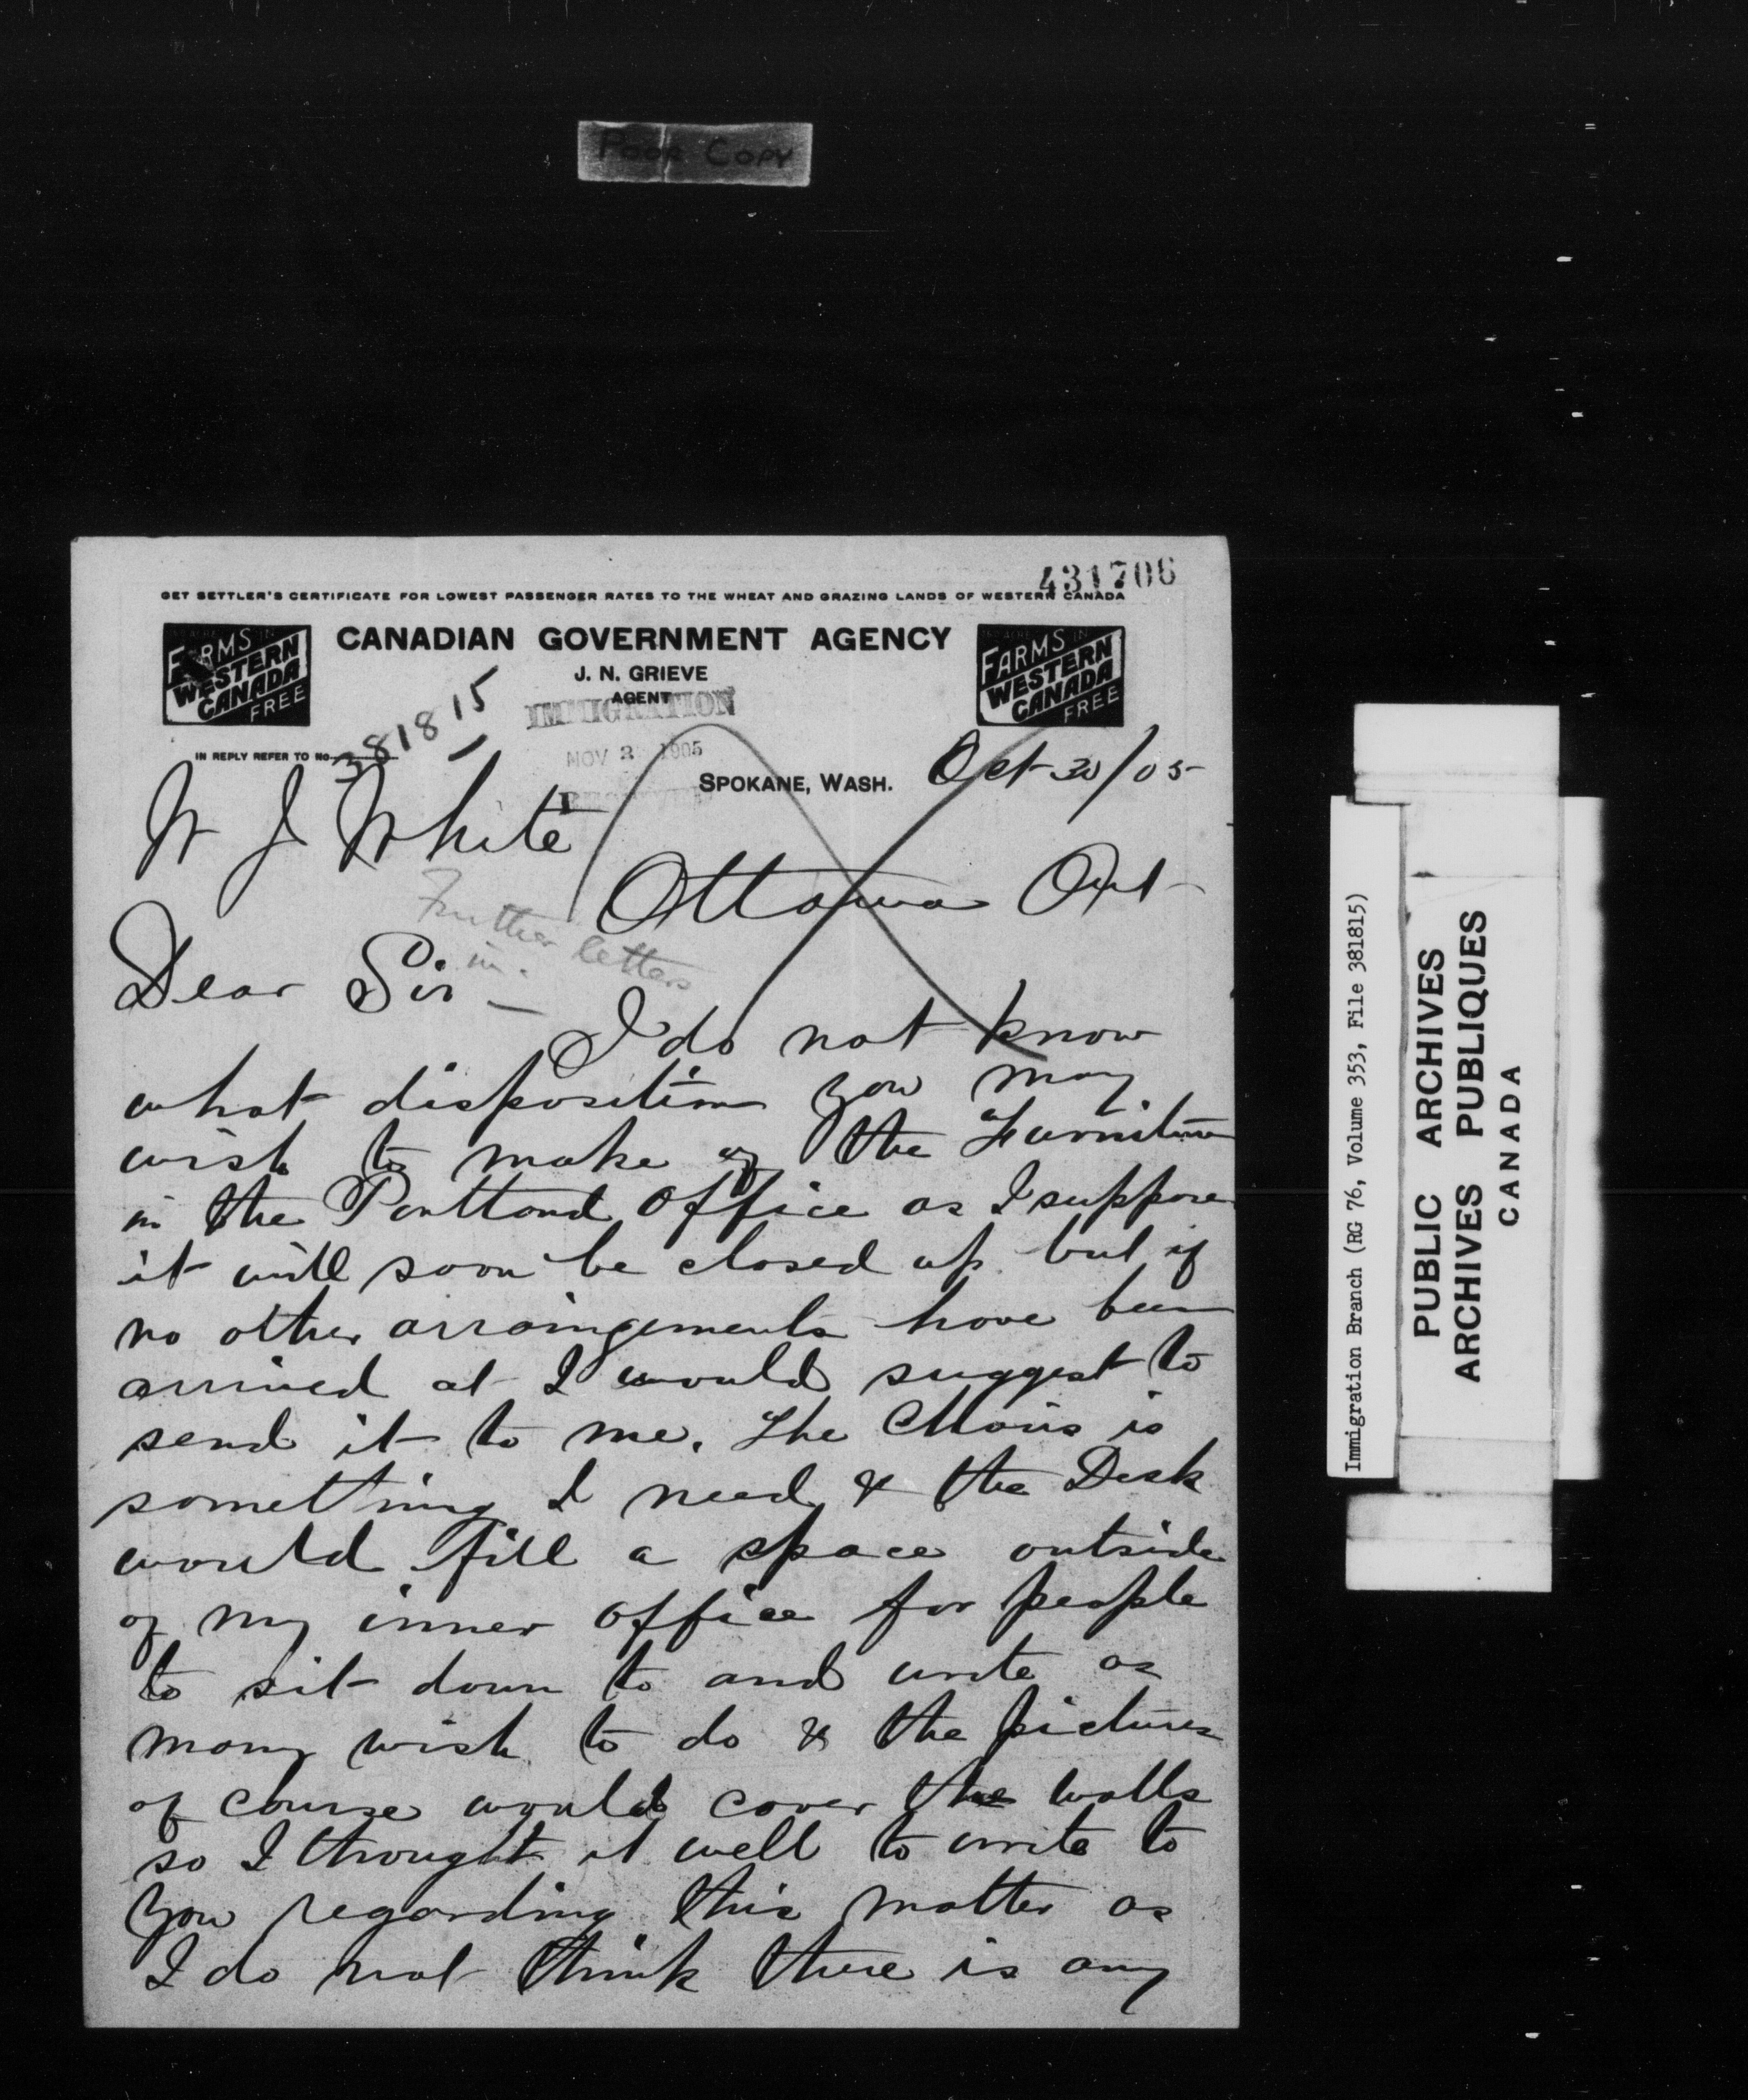 Poor Copy
431706
GET SETTLER'S CERTIFICATE FOR LOWEST PASSENGER RATES TO THE WHEAT AND GRAZING LANDS OF WESTERN CANADA
FARMS IN WESTERN CANADA FREE
CANADIAN GOVERNMENT AGENCY
J. N. GRIEVE
AGENT
FARMS IN WESTERN CANADA FREE
IMMIGRATION
NOV 3 1905
RECEIVED
IN REPLY REFER TO NO 381815
SPOKANE, WASH. Oct 30/05
W J White
Ottawa Ont
Further letters
in.
Dear Sir —
I do not know
what disposition you may
wish to make of the Furniture
in the Portland Office as I suppose
it will soon be closed up but if
no other arraingements have been
arrived at I would suggest to
send it to me. The Chairs is
something I need & the Desk
would fill a space outside
of my inner office for people
to sit down to and write as
many wish to do & the pictures
of course would cover the walls
so I thought it well to write to
you regarding this matter as
I do not think there is any
Immigration Branch (RG 76, Volume 353, File 381815)
PUBLIC ARCHIVES
ARCHIVES PUBLIQUES
CANADA